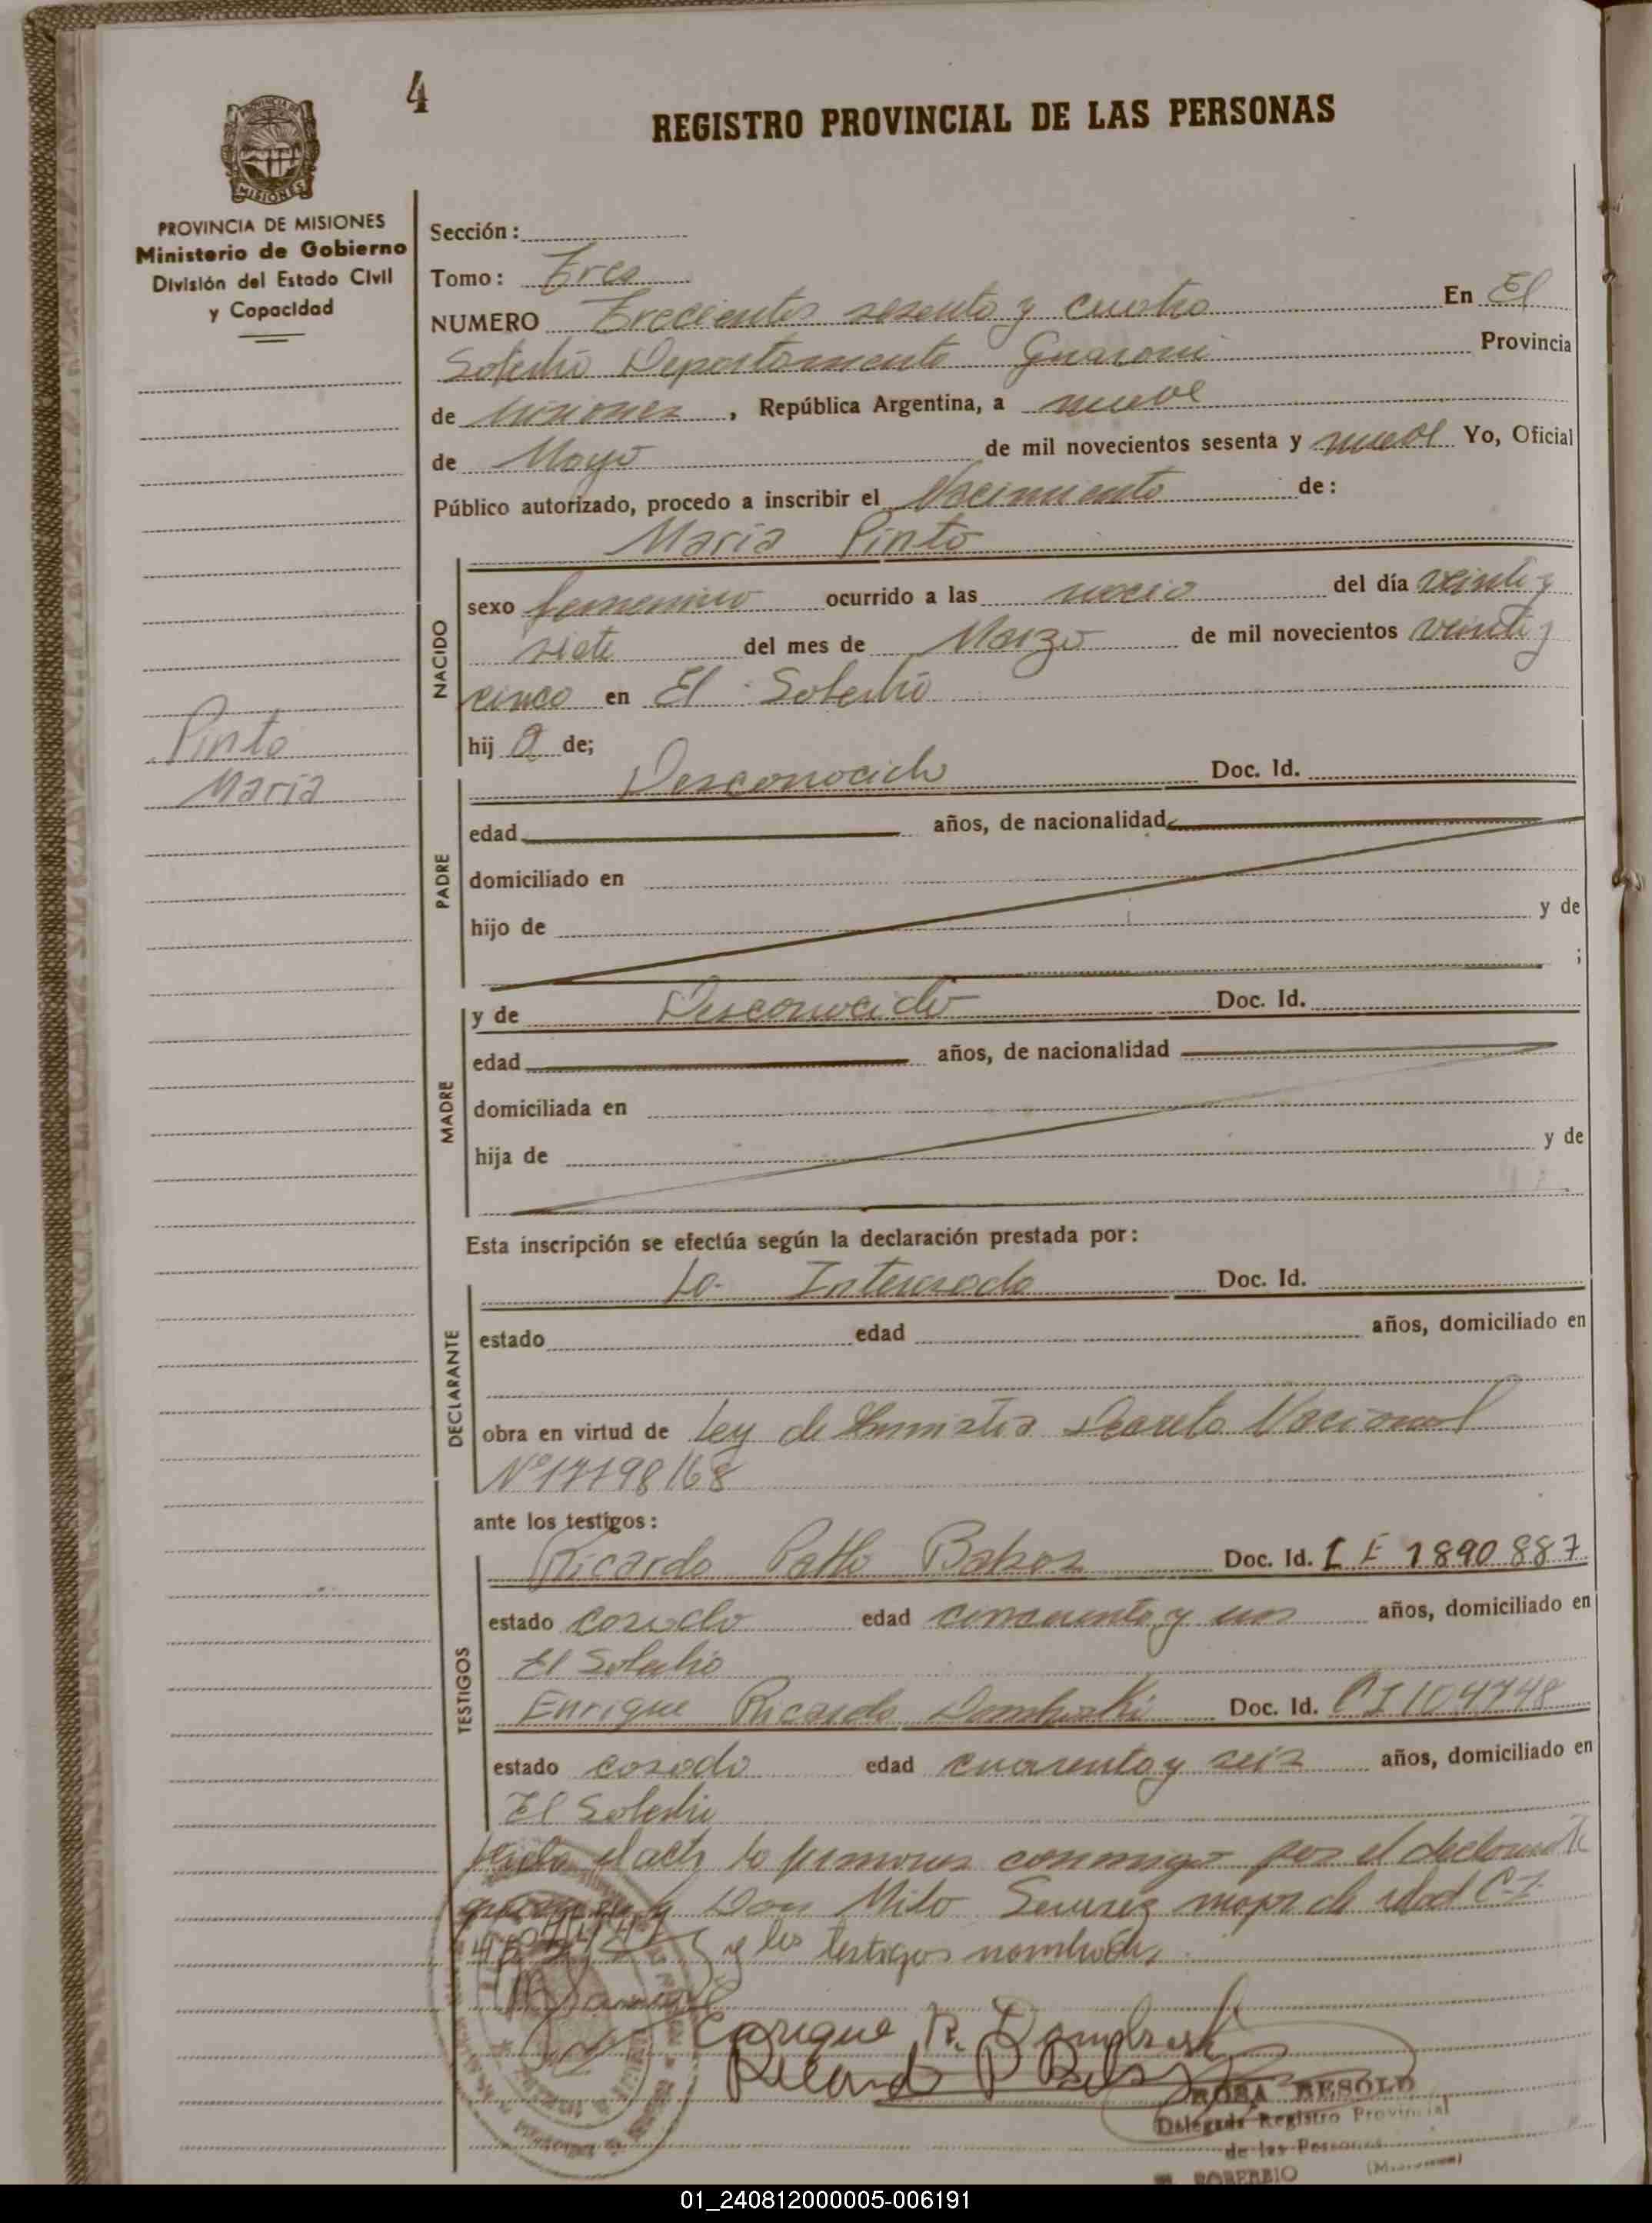 4
REGISTRO PROVINCIAL DE LAS PERSONAS
PROVINCIA DE
MISIONES
PROVINCIA DE MISIONES
Ministerio de Gobierno
División del Estado Civil
y Capacidad
Sección:
Tomo: Tres
NUMERO Trecientos sesenta y cuatro En El
Departamento Guarani Provincia
de Misiones, República Argentina, a nueve
de Mayo de mil novecientos sesenta y nueve Yo, Oficial
Público autorizado, procedo a inscribir el Nacimiento de:
Maria Pinto
NACIDO
sexo femenino ocurrido a las del día veinti y
siete del mes de Marzo de mil novecientos veinti y
cinco en El
hij a de;
Pinto
Maria
PADRE
Desconocido Doc. Id.
edad años, de nacionalidad
domiciliado en
hijo de y de
;
MADRE
y de Desconocido Doc. Id.
edad años, de nacionalidad
domiciliada en
hija de y de
Esta inscripción se efectúa según la declaración prestada por:
DECLARANTE
La Interesada Doc. Id.
estado edad años, domiciliado en
obra en virtud de Ley de Amnistia Decreto Nacional
Nº 17798/68
ante los testigos:
TESTIGOS
Ricardo Doc. Id. 1890887
estado casado edad cincuenta y un años, domiciliado en
El
Enrique Ricardo Dombroski Doc. Id. CI 104748
estado casado edad cuarenta y seis años, domiciliado en
El
el acta la firmaron conmigo por el declarante
Don Milo mayor de edad C.I.
y los testigos nombrados
Enrique R.
Ricardo P
ROSA BESOLD
Delegada Registro Provincial
de las Personas
SOBERBIO (Misiones)
01_240812000005-006191